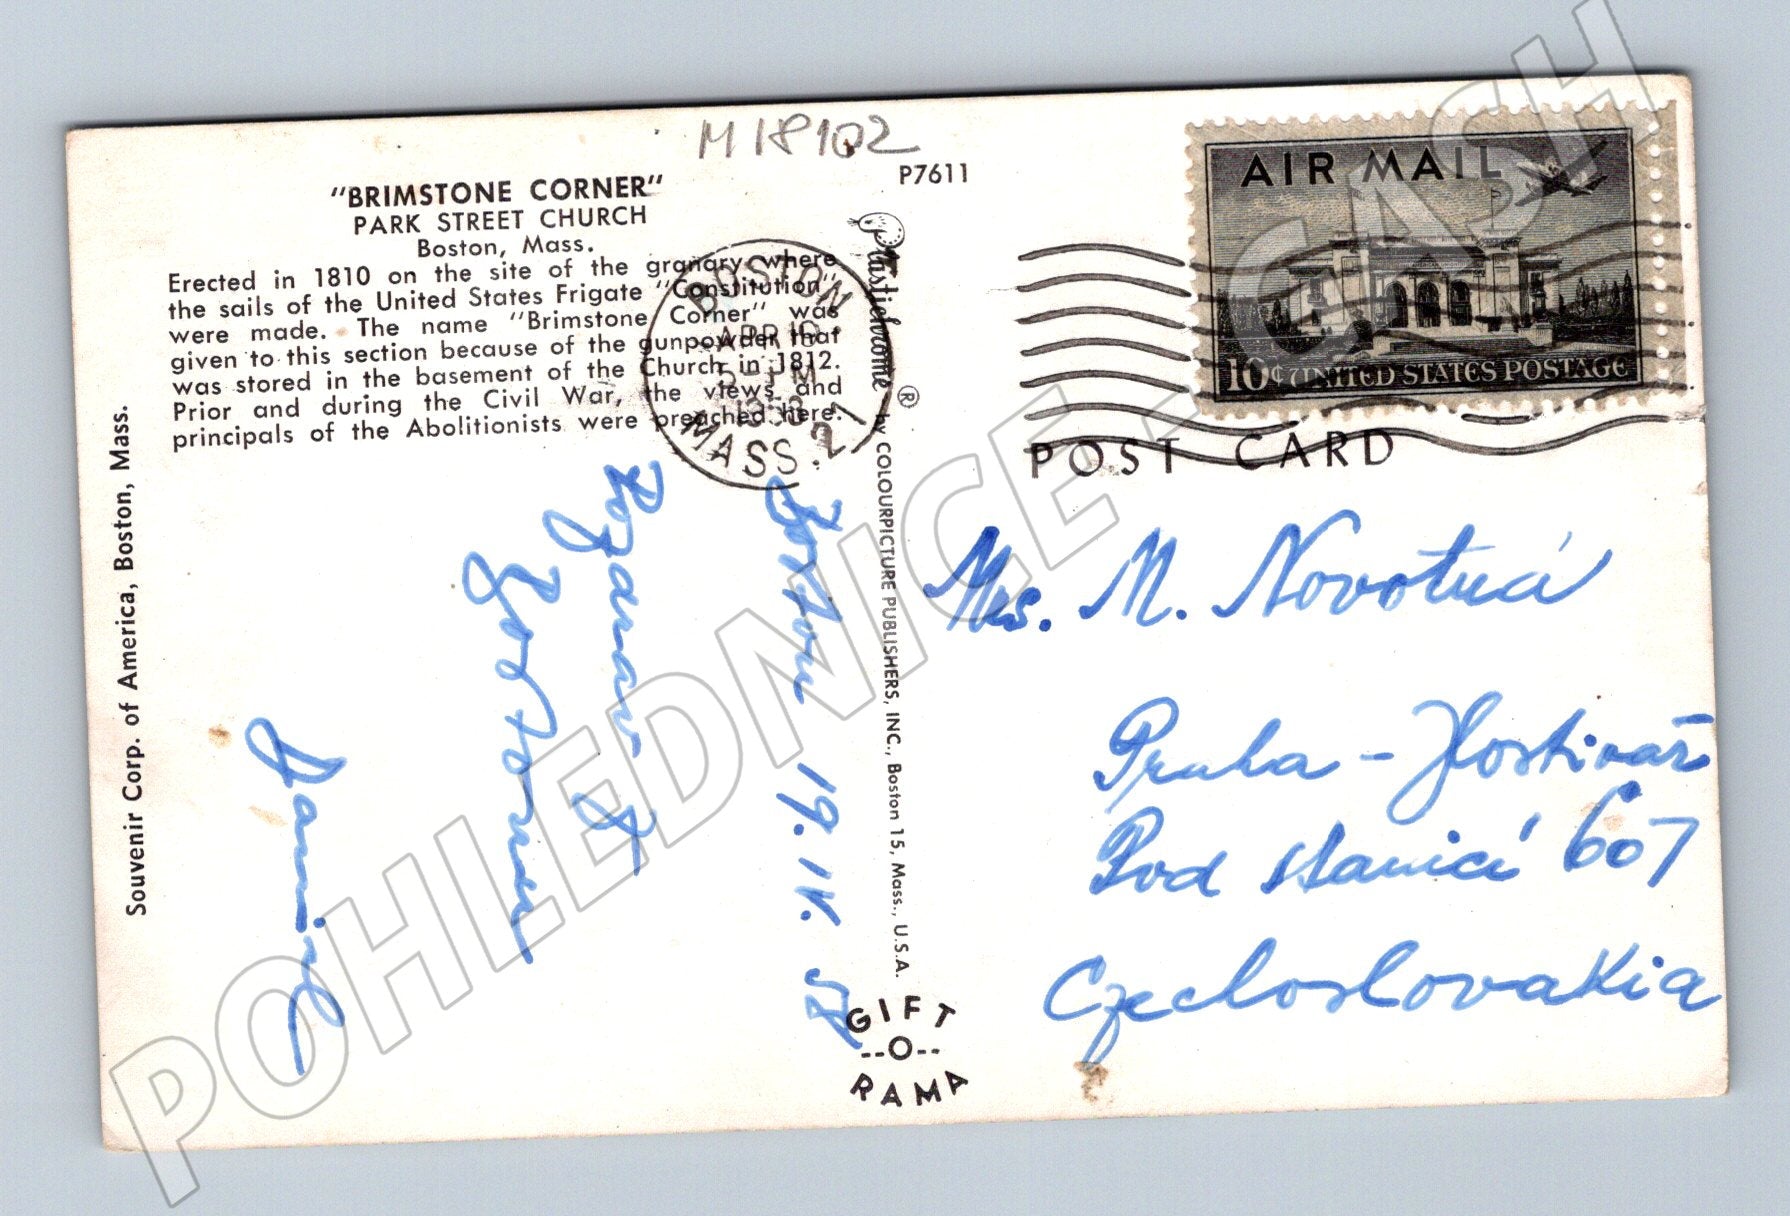 M 18102
P7611
"BRIMSTONE CORNER"
PARK STREET CHURCH
Boston, Mass.
Erected in 1810 on the site of the granary where
the sails of the United States Frigate "Constitution"
were made. The name "Brimstone Corner" was
given to this section because of the gunpowder that
was stored in the basement of the Church in 1812.
Prior and during the Civil War, the views and
principals of the Abolitionists were preached here.
Souvenir Corp. of America, Boston, Mass.
BOSTON
APR 19
PM
1958
MASS. 21
Plastichrome ® by COLOURPICTURE PUBLISHERS, INC., Boston 15, Mass., U.S.A.
GIFT
--O--
RAMA
AIR MAIL
10¢ UNITED STATES POSTAGE
POST CARD
Boston 19. IV. 58
Pozdrav z
Bostonu
Mrs. M. Novotná
Praha - Hostivař
Pod stanicí 607
Czechoslovakia
POHLEDNICE - CASH